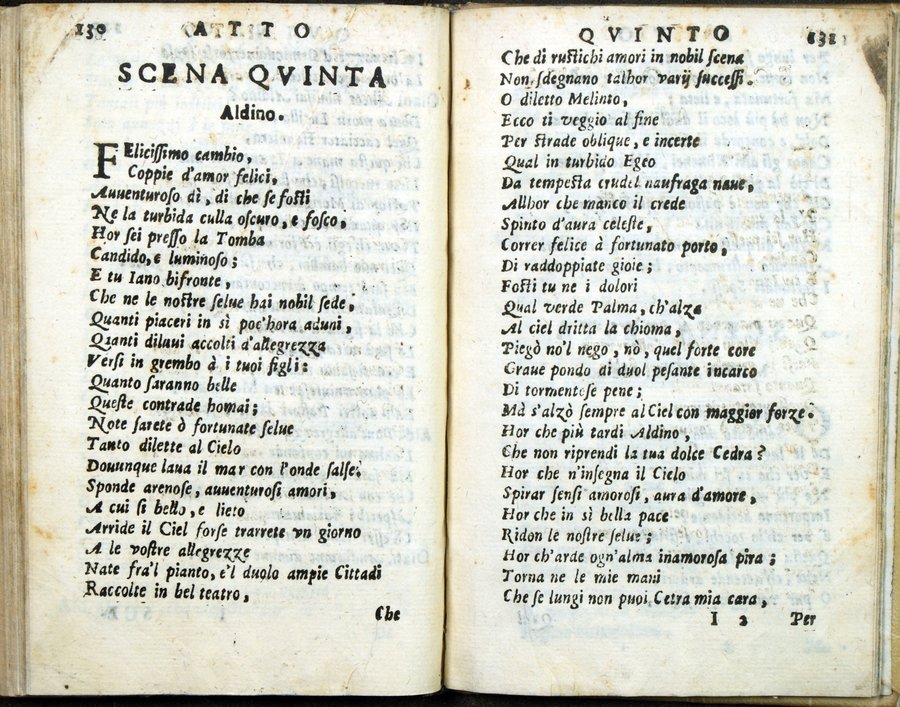 130 ATTO
SCENA QVINTA
Aldino.
FElicissimo cambio,
Coppie d'amor felici,
Auuenturoso dì, di che se fosti
Ne la turbida culla oscuro, e fosco,
Hor sei presso la Tomba
Candido, e luminoso;
E tu Iano bifronte,
Che ne le nostre selue hai nobil sede,
Quanti piaceri in sì poc'hora aduni,
Quanti diluui accolti d'allegrezza
Versi in grembo à i tuoi figli:
Quanto saranno belle
Queste contrade homai;
Note sarete ò fortunate selue
Tanto dilette al Cielo
Douunque laua il mar con l'onde salse:
Sponde arenose, auuenturosi amori,
A cui sì bello, e lieto
Arride il Ciel forse trarrete vn giorno
A le vostre allegrezze
Nate fra'l pianto, e'l duolo ampie Cittadi
Raccolte in bel teatro,
Che
QVINTO 131
Che di rustichi amori in nobil scena
Non sdegnano talhor varij successi.
O diletto Melinto,
Ecco ti veggio al fine
Per strade oblique, e incerte
Qual in turbido Egeo
Da tempesta crudel naufraga naue,
Allhor che manco il crede
Spinto d'aura celeste,
Correr felice à fortunato porto,
Di raddoppiate gioie;
Fosti tu ne i dolori
Qual verde Palma, ch'alza
Al ciel dritta la chioma,
Piegò no'l nego, nò, quel forte core
Graue pondo di duol pesante incarco
Di tormentose pene;
Mà s'alzò sempre al Ciel con maggior forze.
Hor che più tardi Aldino,
Che non riprendi la tua dolce Cedra?
Hor che n'insegna il Cielo
Spirar sensi amorosi, aura d'amore,
Hor che in sì bella pace
Ridon le nostre selue;
Hor ch'arde ogn'alma inamorosa pira;
Torna ne le mie mani
Che se lungi non puoi, Cetra mia cara,
I 2 Per